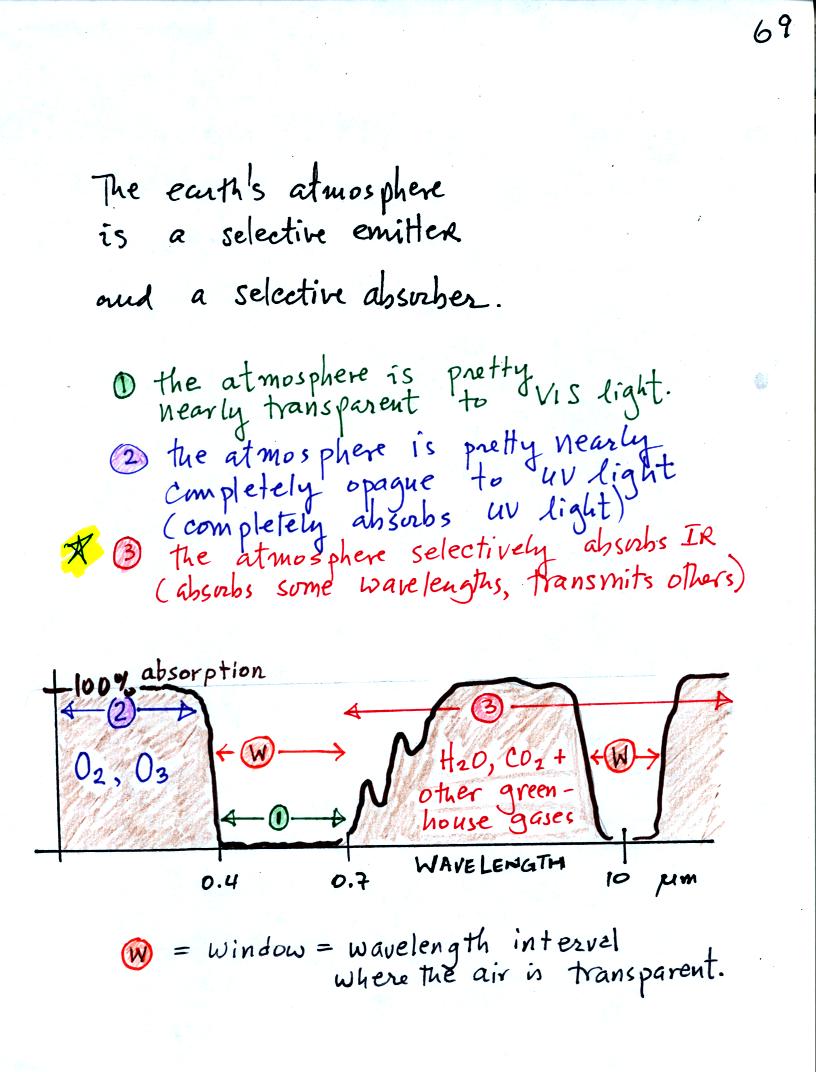 69
The earth's atmosphere
is a selective emitter
and a selective absorber.
① the atmosphere is pretty
nearly transparent to VIS light.
② the atmosphere is pretty nearly
completely opaque to UV light
(completely absorbs UV light)
③ the atmosphere selectively absorbs IR
(absorbs some wavelengths, transmits others)
100% absorption
② ③
O₂, O₃
W W
H₂O, CO₂ +
other green-
house gases
①
WAVELENGTH
0.4 0.7 10 μm
W = window = wavelength interval
where the air is transparent.